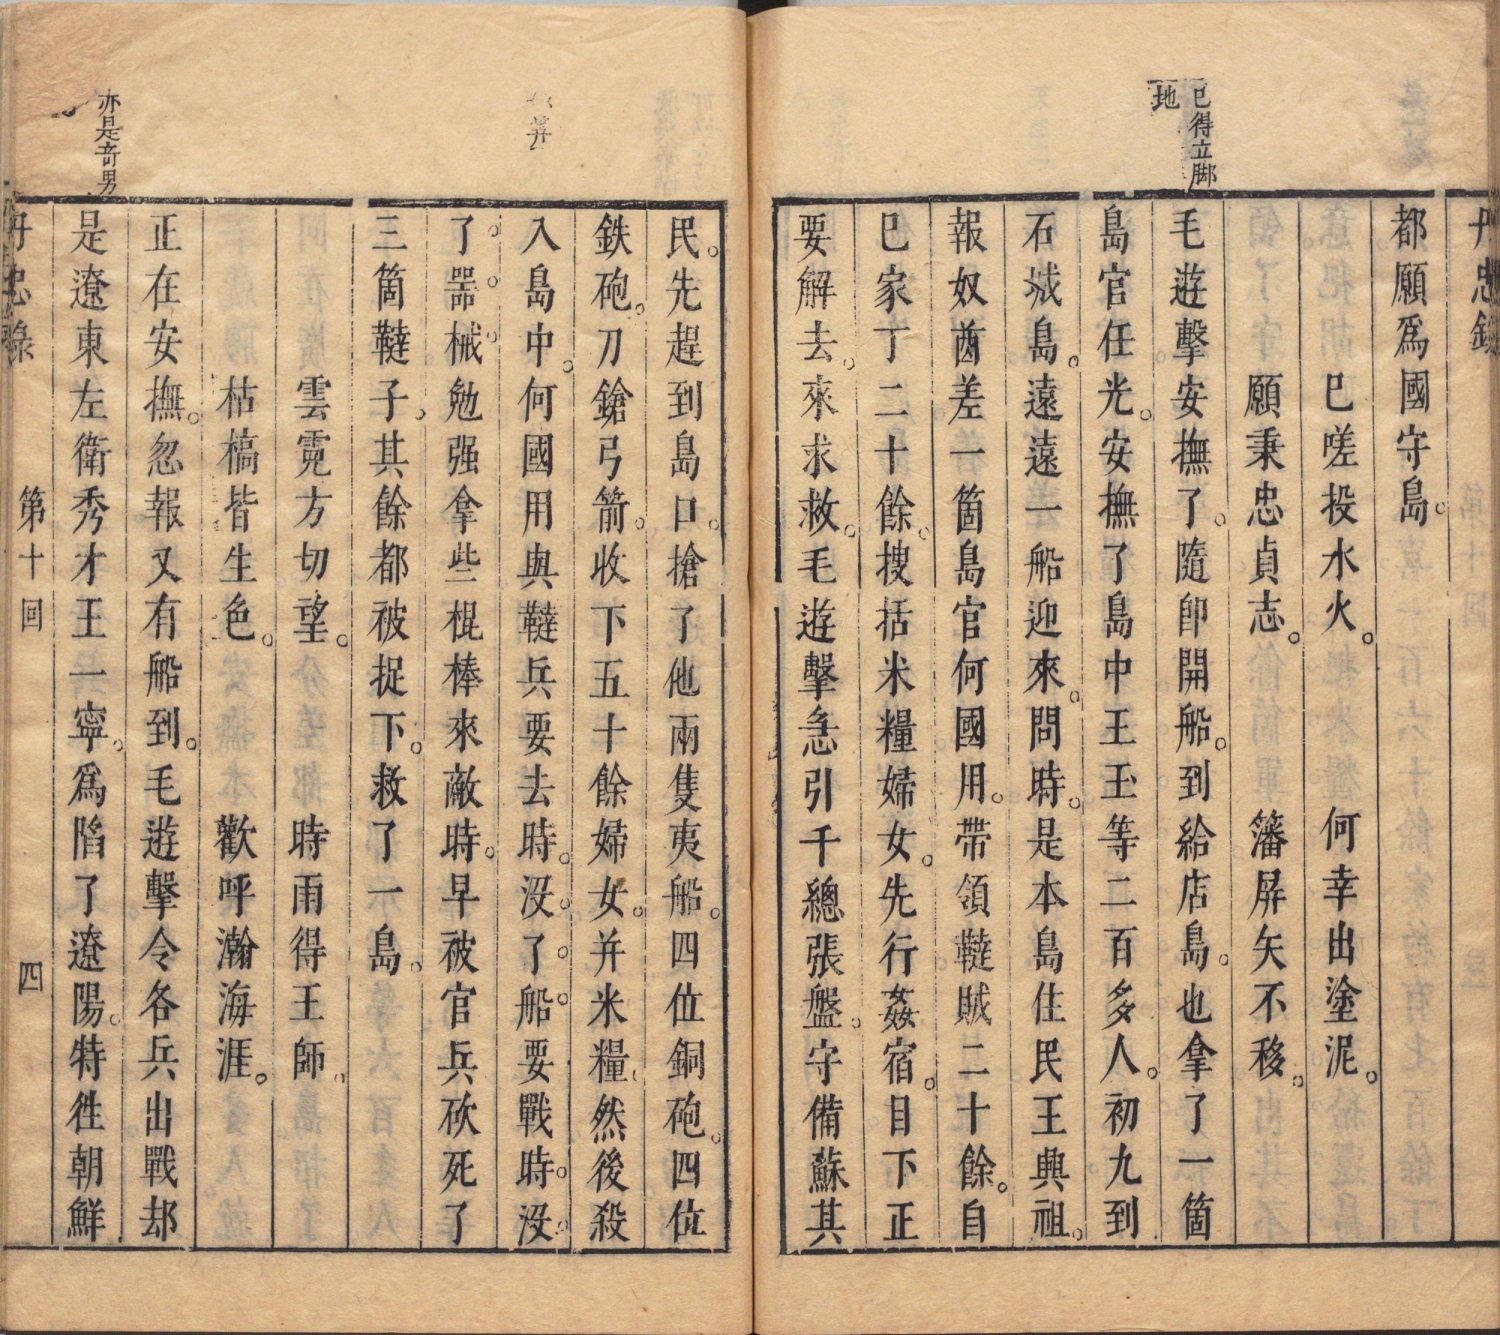 丹忠錄
都願爲國守島。
已嗟投水火。何幸出塗泥。
願秉忠貞志。籓屏矢不移。
已得立脚
地
毛遊擊安撫了。隨卽開船。到給店島。也拿了一箇
島官任光。安撫了島中王玉等二百多人。初九到
石城島。遠遠一船迎來。問時。是本島住民王興祖。
報奴酋差一箇島官何國用。帶領韃賊二十餘。自
已家丁二十餘。搜括米糧婦女。先行姦宿。目下正
要解去。來求救。毛遊擊急引千總張盤。守備蘇其
民。先趕到島口。搶了他兩隻夷船。四位銅砲。四位
鉄砲。刀鎗弓箭。收下五十餘婦女。并米糧。然後殺
入島中。何國用與韃兵要去時。沒了船。要戰時。沒
了噐械。勉强拿些棍棒來敵時。早被官兵砍死了
三箇韃子。其餘都被捉下。救了一島。
雲霓方切望。時雨得王師。
枯槁皆生色。歡呼瀚海涯。
正在安撫。忽報又有船到。毛遊擊令各兵出戰却
是遼東左衛秀才王一寧。爲陷了遼陽。特徃朝鮮
亦是奇男
丹忠錄 第十回 四